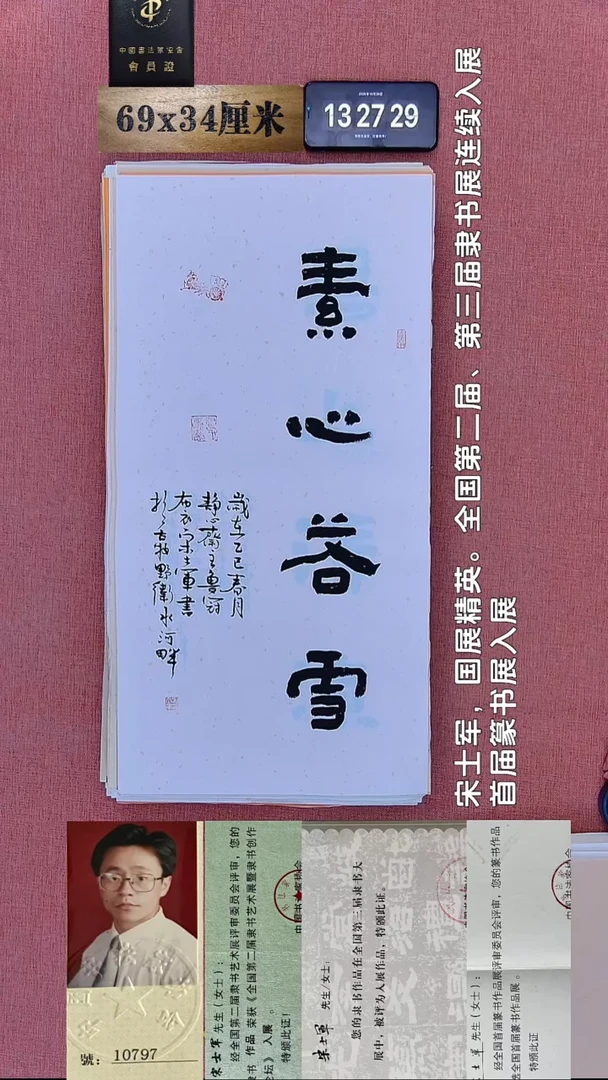 中國書法家协会
會員證
69x34厘米
13 27 29
素心若雪
歲在乙巳春月
静心齋主曹州
布衣宋士軍書
於古牧野衞水河畔
宋士军，国展精英。全国第二届、第三届隶书展连续入展
首届篆书展入展
号：10797
宋士军 先生(女士)：
经全国第二届隶书艺术展评审委员会评审，您的
隶书 作品 荣获《全国第二届隶书艺术展暨隶书创作
论坛》 入展 。
特颁此证！
宋士軍 先生/女士：
您的隶书作品在全国第三届隶书大
展中，被评为入展作品，特颁此证。
士军 先生(女士)：
经全国首届篆书作品展评审委员会评审，您的篆书作品
选全国首届篆书作品展。
特颁此证